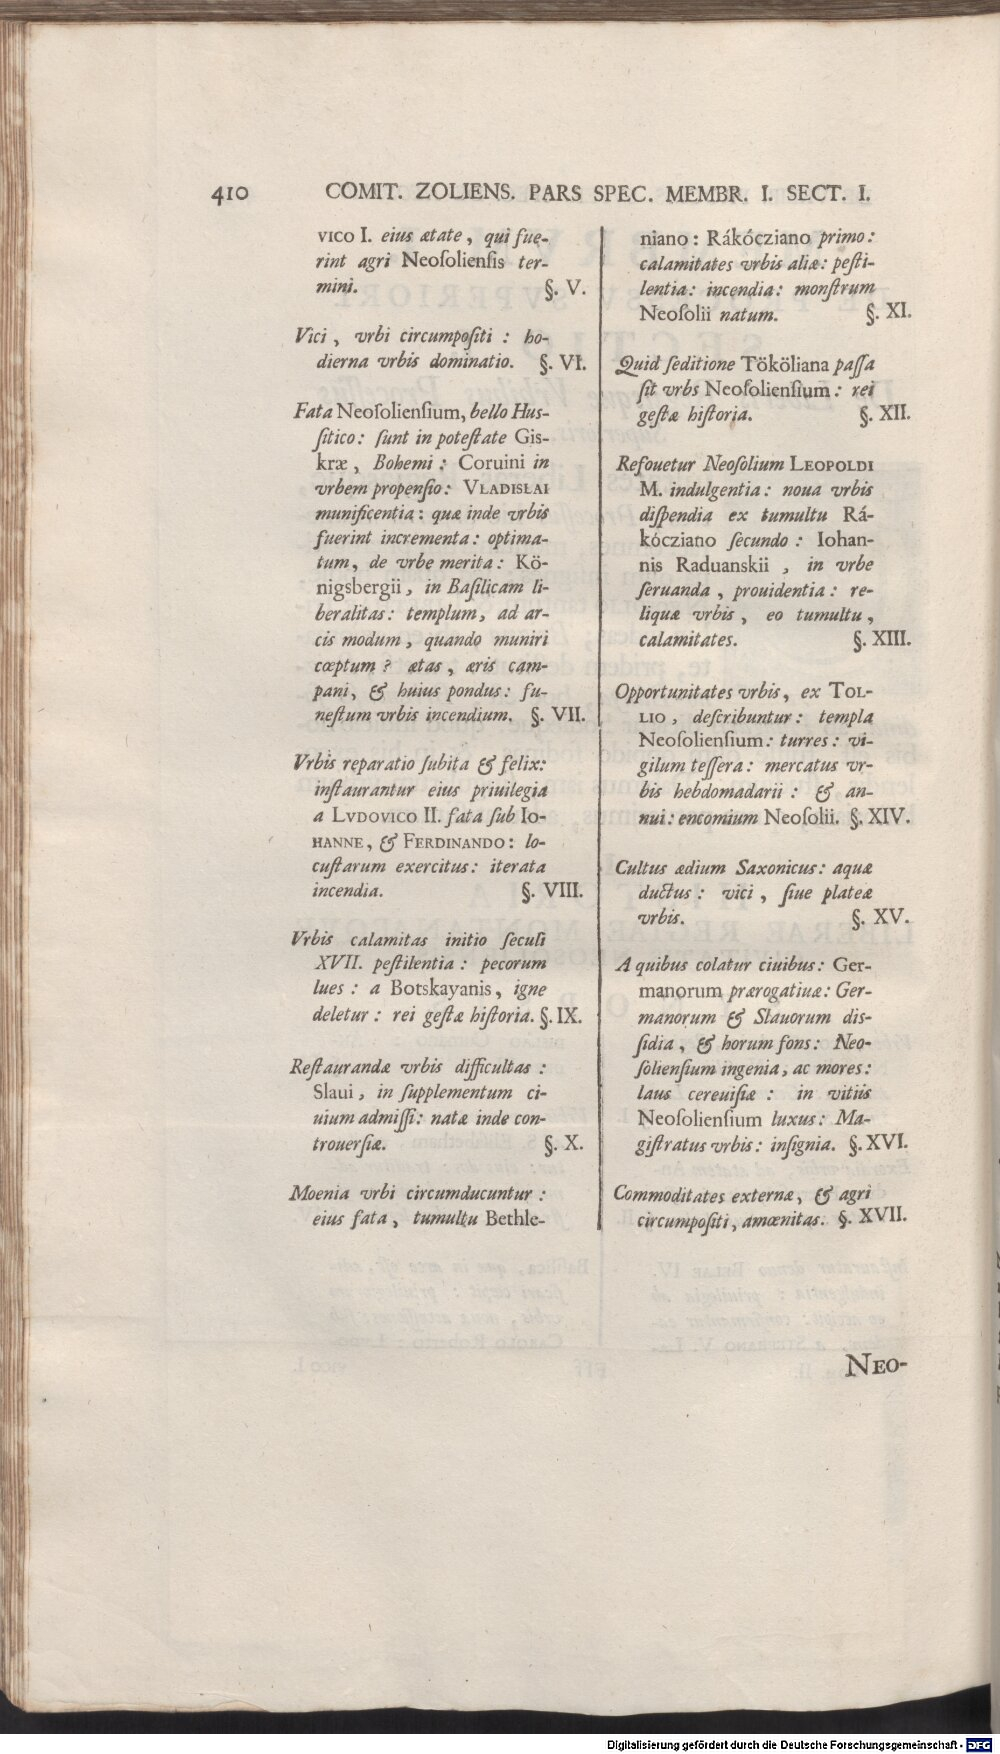 410 COMIT. ZOLIENS. PARS SPEC. MEMBR. I. SECT. I.
VICO I. eius ætate, qui fue-
rint agri Neoſolienſis ter-
mini. §. V.
Vici, vrbi circumpoſiti : ho-
dierna vrbis dominatio. §. VI.
Fata Neoſolienſium, bello Huſ-
ſitico: ſunt in poteſtate Giſ-
kræ, Bohemi : Coruini in
vrbem propenſio: VLADISLAI
munificentia: quæ inde vrbis
fuerint incrementa: optima-
tum, de vrbe merita: Kö-
nigsbergii, in Baſilicam li-
beralitas: templum, ad ar-
cis modum, quando muniri
cœptum? ætas, æris cam-
pani, & huius pondus: fu-
neſtum vrbis incendium. §. VII.
Vrbis reparatio ſubita & felix:
inſtaurantur eius priuilegia
a LVDOVICO II. fata ſub IO-
HANNE, & FERDINANDO: lo-
cuſtarum exercitus: iterata
incendia. §. VIII.
Vrbis calamitas initio ſeculi
XVII. peſtilentia: pecorum
lues: a Botskayanis, igne
deletur: rei geſtæ hiſtoria. §. IX.
Reſtaurandæ vrbis difficultas :
Slaui, in ſupplementum ci-
uium admiſſi: natæ inde con-
trouerſiæ. §. X.
Moenia vrbi circumducuntur :
eius fata, tumultu Bethle-
niano: Rákócziano primo:
calamitates vrbis aliæ: peſti-
lentia: incendia: monſtrum
Neoſolii natum. §. XI.
Quid ſeditione Tököliana paſſa
ſit vrbs Neoſolienſium: rei
geſtæ hiſtoria. §. XII.
Refouetur Neoſolium LEOPOLDI
M. indulgentia: noua vrbis
diſpendia ex tumultu Rá-
kócziano ſecundo: Iohan-
nis Raduanskii, in vrbe
ſeruanda, prouidentia: re-
liquæ vrbis, eo tumultu,
calamitates. §. XIII.
Opportunitates vrbis, ex TOL-
LIO, deſcribuntur: templa
Neoſolienſium: turres: vi-
gilum teſſera: mercatus vr-
bis hebdomadarii: & an-
nui: encomium Neoſolii. §. XIV.
Cultus ædium Saxonicus: aquæ
ductus: vici, ſiue plateæ
vrbis. §. XV.
A quibus colatur ciuibus: Ger-
manorum prærogatiuæ: Ger-
manorum & Slauorum diſ-
ſidia, & horum fons: Neo-
ſolienſium ingenia, ac mores:
laus cereuiſiæ: in vitiis
Neoſolienſium luxus: Ma-
giſtratus vrbis: inſignia. §. XVI.
Commoditates externæ, & agri
circumpoſiti, amœnitas. §. XVII.
NEO-
Digitalisierung gefördert durch die Deutsche Forschungsgemeinschaft - DFG